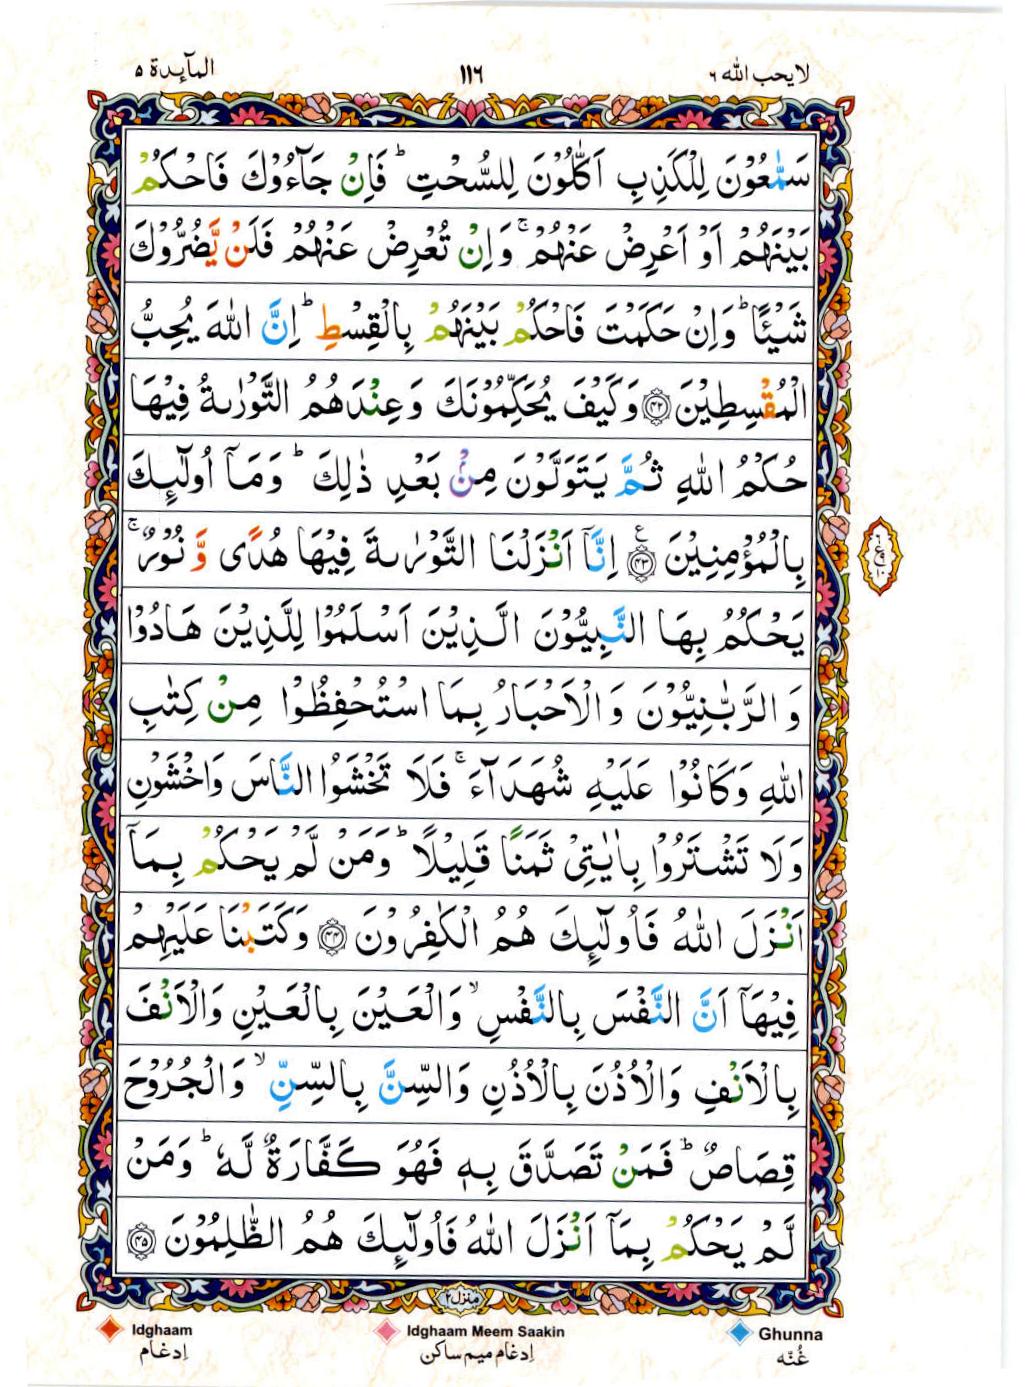 لا يحب الله ٦
١١٦
المآئدة ٥
سَمّٰعُوْنَ لِلْكَذِبِ اَكّٰلُوْنَ لِلسُّحْتِ ؕ فَاِنْ جَآءُوْكَ فَاحْكُمْ
بَيْنَهُمْ اَوْ اَعْرِضْ عَنْهُمْ ۚ وَاِنْ تُعْرِضْ عَنْهُمْ فَلَنْ يَّضُرُّوْكَ
شَيْئًا ؕ وَاِنْ حَكَمْتَ فَاحْكُمْ بَيْنَهُمْ بِالْقِسْطِ ؕ اِنَّ اللّٰهَ يُحِبُّ
الْمُقْسِطِيْنَ ﴿۴۲﴾ وَكَيْفَ يُحَكِّمُوْنَكَ وَعِنْدَهُمُ التَّوْرٰىةُ فِيْهَا
حُكْمُ اللّٰهِ ثُمَّ يَتَوَلَّوْنَ مِنْۢ بَعْدِ ذٰلِكَ ؕ وَمَآ اُولٰٓئِكَ
بِالْمُؤْمِنِيْنَ ﴿۴۳﴾ ع اِنَّآ اَنْزَلْنَا التَّوْرٰىةَ فِيْهَا هُدًى وَّ نُوْرٌ ۚ
يَحْكُمُ بِهَا النَّبِيُّوْنَ الَّذِيْنَ اَسْلَمُوْا لِلَّذِيْنَ هَادُوْا
وَ الرَّبّٰنِيُّوْنَ وَ الْاَحْبَارُ بِمَا اسْتُحْفِظُوْا مِنْ كِتٰبِ
اللّٰهِ وَ كَانُوْا عَلَيْهِ شُهَدَآءَ ۚ فَلَا تَخْشَوُا النَّاسَ وَاخْشَوْنِ
وَلَا تَشْتَرُوْا بِاٰيٰتِيْ ثَمَنًا قَلِيْلًا ؕ وَمَنْ لَّمْ يَحْكُمْ بِمَآ
اَنْزَلَ اللّٰهُ فَاُولٰٓئِكَ هُمُ الْكٰفِرُوْنَ ﴿۴۴﴾ وَكَتَبْنَا عَلَيْهِمْ
فِيْهَآ اَنَّ النَّفْسَ بِالنَّفْسِ ۙ وَالْعَيْنَ بِالْعَيْنِ وَالْاَنْفَ
بِالْاَنْفِ وَالْاُذُنَ بِالْاُذُنِ وَالسِّنَّ بِالسِّنِّ ۙ وَالْجُرُوْحَ
قِصَاصٌ ؕ فَمَنْ تَصَدَّقَ بِهٖ فَهُوَ كَفَّارَةٌ لَّهٗ ؕ وَمَنْ
لَّمْ يَحْكُمْ بِمَآ اَنْزَلَ اللّٰهُ فَاُولٰٓئِكَ هُمُ الظّٰلِمُوْنَ ﴿۴۵﴾
منزل ٢
Idghaam
Idghaam Meem Saakin
Ghunna
اِدغام
اِدغام ميم ساكن
غُنّه